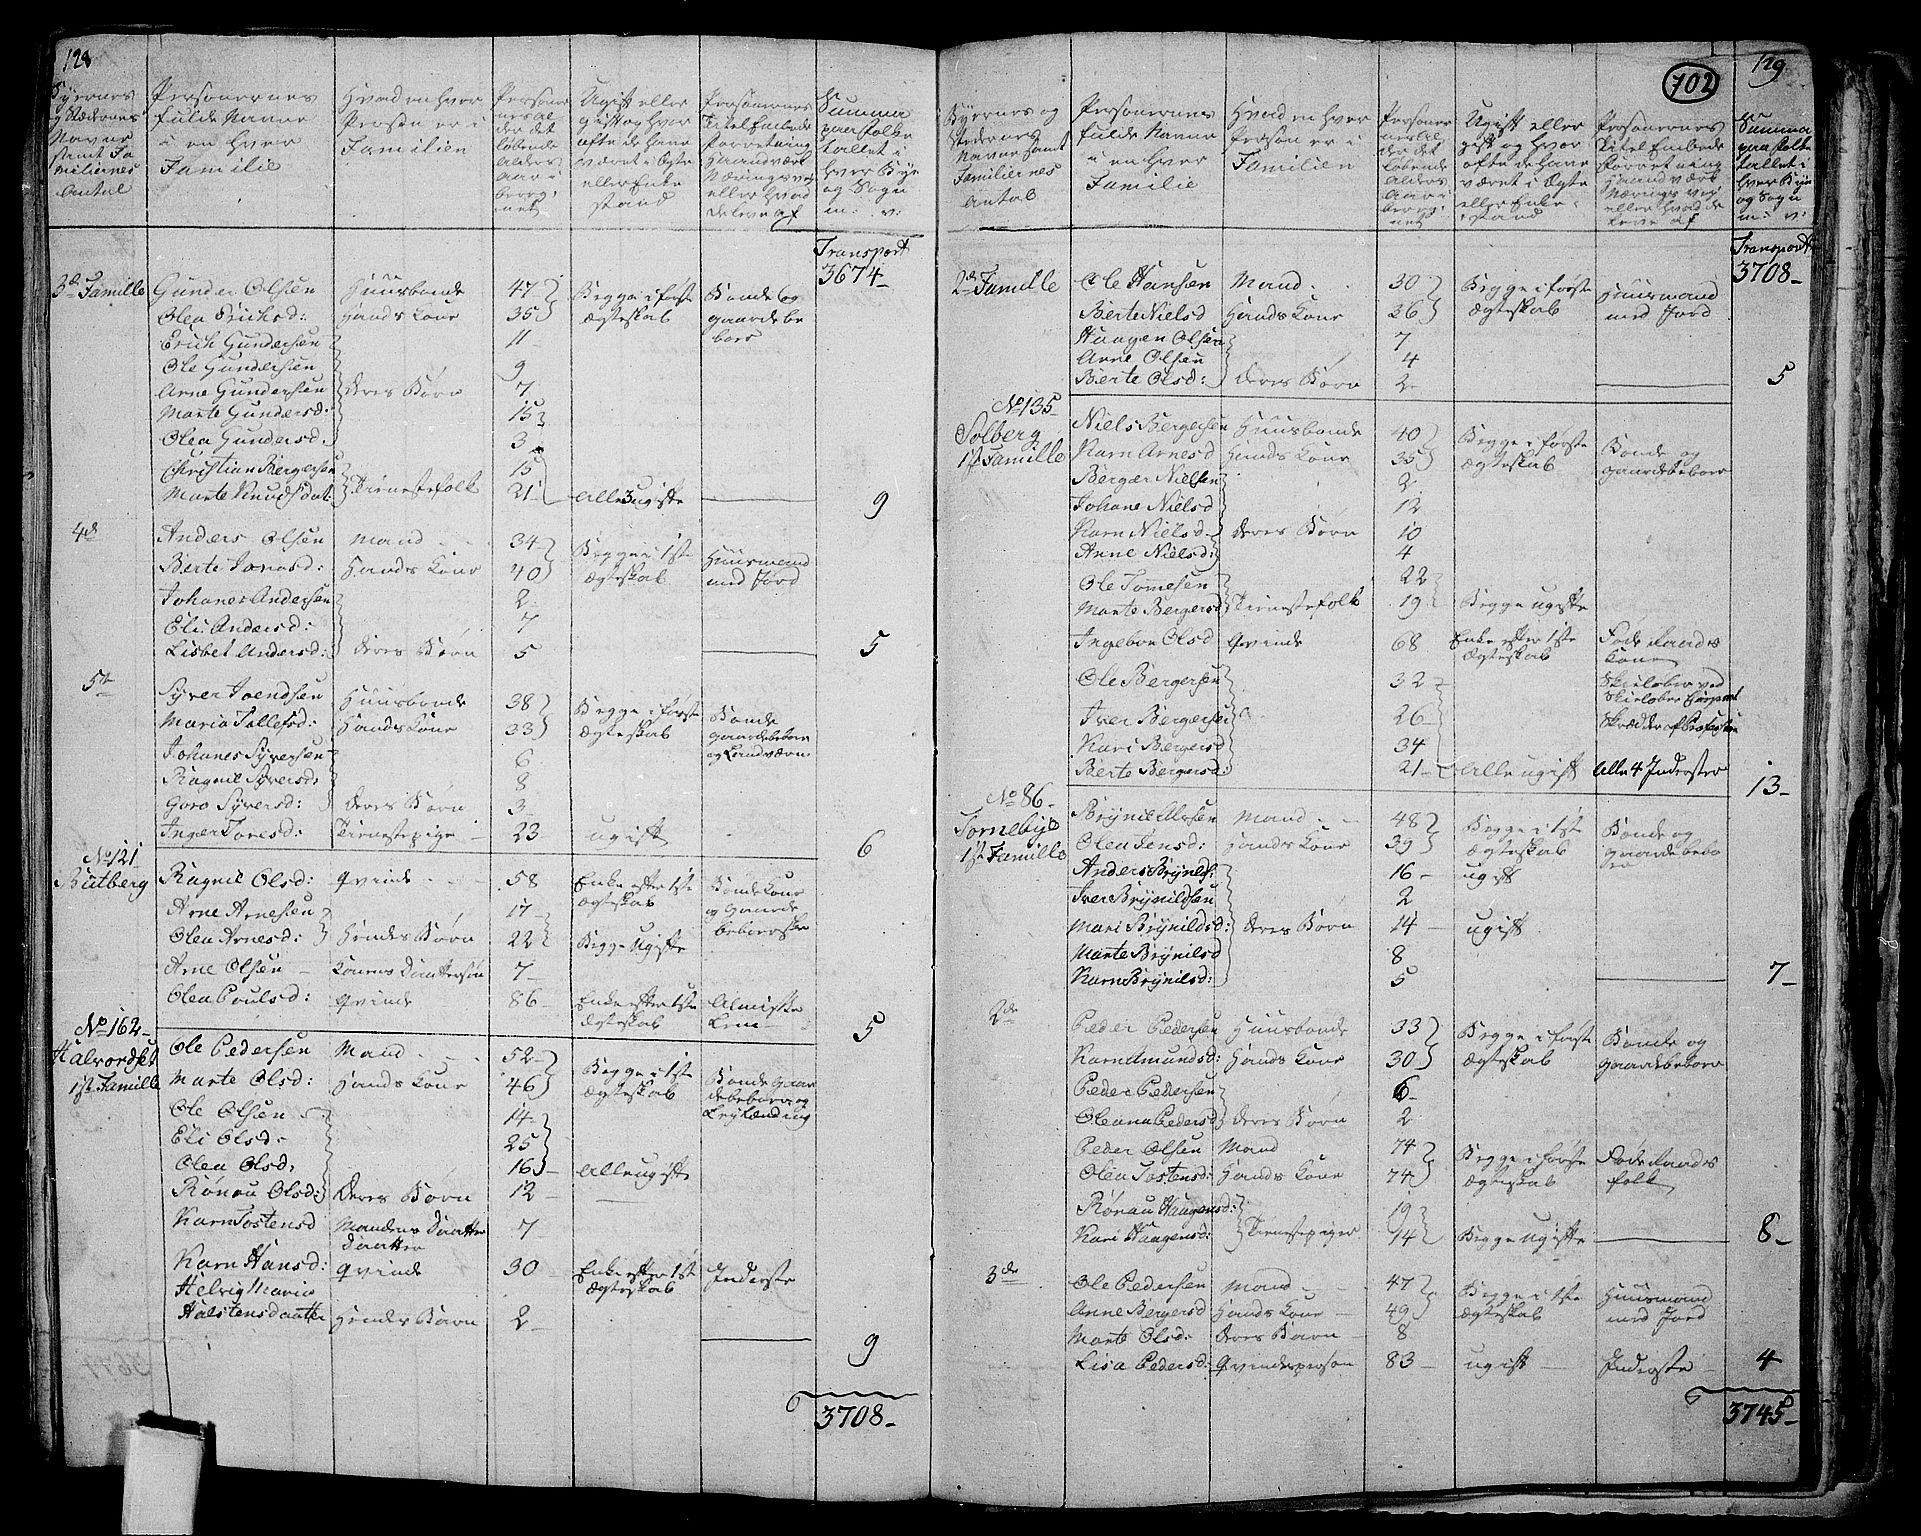 128
Byernes og Stædernes Navne samt Familiernes Antal | Personernes fulde Navne i en hver Familie | Hvad en hver Person er i Familien | Personernes Alder det løbende Alders Aar iberegnet | Ugift eller gift og hvor ofte de have været i Ægte eller Enkestand | Personernes Titel Embede Forretning Haandværk Næringsvej eller hvad de leve af | Summa paa folketallet i hver Bye og Sogn m: v:
Transport 3674-
3de Familie Gunder Olsen Huusbonde 47 Begge i første Ægteskab Bonde og gaardebeboer
Olea Erichsd: Hands Kone 35
Erich Gundersen 11
Ole Gundersen 9
Arne Gundersen deres Børn 7
Marte Gundersd: 15
Olea Gundersd. 3
Christian Bergersen 15
Marte Knudsdat: Tienestefolk 21 Alle 3 ugifte 9
4de Anders Olsen Mand 34 Begge i 1ste Ægteskab Huusmand med Jord
Berte Jonasd: Hands Kone 40
Johanes Andersen 2
Eli Andersd: 7
Lisbet Andersd: deres Børn 5 5
5te Syver Svendsen Huusbonde 38 Begge i første Ægteskab Bonde gaardebeboer og Landværn
Maria Tollefsd: Hands Kone 33
Johanes Syversen 6
Ragnil Syversd: 8
Goro Syversd: deres Børn 3
Inger Toresd: Tienestepige 23 ugift 6
No 121
Butberg Ragnil Olsd: Qvinde 58 Enke efter 1ste Ægteskab Bonde Kone og Gaardebeboerske
Arne Arnesen 17
Olea Arnesd: Hendes Børn 22 Begge Ugifte
Arne Olsen Konens Daattersøn 7
Olea Poulsd: Qvinde 86 Enke efter 1ste Ægteskab Almisse Lem 5
No 162-
Halvordset
1ste Familie Ole Pedersen Mand 52 Begge i 1ste Ægteskab Bonde gaardebeboer og
Marte Olsd: Hands Kone 46
Ole Olsen 14
Eli Olsd: 25
Olea Olsd: 16 Alle ugifte
Rønau Olsd: Deres Børn 12
Karn Tostensd Mandens Daatter Daatter 7
Karn Hansd: Qvinde 30 Enke efter 1ste Ægteskab Inderste
Helvig Maria
Halstensdaatter Hendes Barn 2
9
3708-
129
702
Byernes og Stedernes Navne samt Familiernes Antal | Personernes fulde Navne i en hver Familie | Hvad en hver Person er i Familien | Personernes Alder det løbende Alders Aar iberegnet | Ugift eller gift og hvor ofte de have været i Ægte eller Enkestand | Personernes Titel Embede Forretning Haandværk Nærings vej eller hvad de leve af | Summa paa folketallet i hver Bye og Sogn m: v:
Transport 3708-
2de Familie Ole Hansen Mand 30 Begge i første Ægteskab Huusmand med Jord
Berte Nielsd Hands Kone 36
Haagen Olsen 7
Arne Olsen 4
Berte Olsd: deres Børn 2 5
No 135-
Solberg
1ste Familie Niels Bergersen Huusbonde 40 Begge i første Ægteskab Bonde og gaardebeboer
Karn Arnesd Hands Kone 35
Berger Nielsen 2
Johane Nielsd 12
Karn Nielsd deres Børn 10
Anne Nielsd: 4
Ole Tomesen 22
Marte Bergersd Tienestefolk 19 Begge ugifte
Ingebor Olsd Qvinde 68 Enke efter 1ste Ægteskab Føde Raads Kone
Ole Bergersen 32 Skieløber ved Skieløber
Iver Bergersen 26 Skrædder af Profession
Kari Bergersd 34
Berte Bergersd: 21 Alle ugift Alle 4 Inderster 13-
No 86-
Tornebye
1ste Familie Brynil Mand 48 Begge i 1ste Ægteskab Bonde og gaardebeboer
Olea Jensd: Hands Kone 39
Anders Brynilds: 16 ugift
Iver Brynildsen 2
Mari Brynildsd: deres Børn 14 ugift
Marte Brynilsd 8
Karn Brynilsd: 5 7-
2de Peder Pedersen Huusbonde 33 Begge i første Ægteskab Bonde og gaardebeboer
Karn Amundsd: Hands Kone 30
Peder Pedersen 6
Oleana Pedersd deres Børn 2
Peder Olsen Mand 74 Begge i første Ægteskab Føde Raads folk
Olea Tostensd: Hands Kone 74
Rønau Haagensd: 19
Kari Haagensd: Tienestepiger 14 Begge ugifte 8-
3de Ole Pedersen Mand 47 Begge i 1ste Ægteskab Huusmand med Jord
Anne Bergersd Hands Kone 49
Marte Olsd: deres Barn 8
Lisa Pedersd: Qvindeperson 83 ugift Inderste 4
3745-